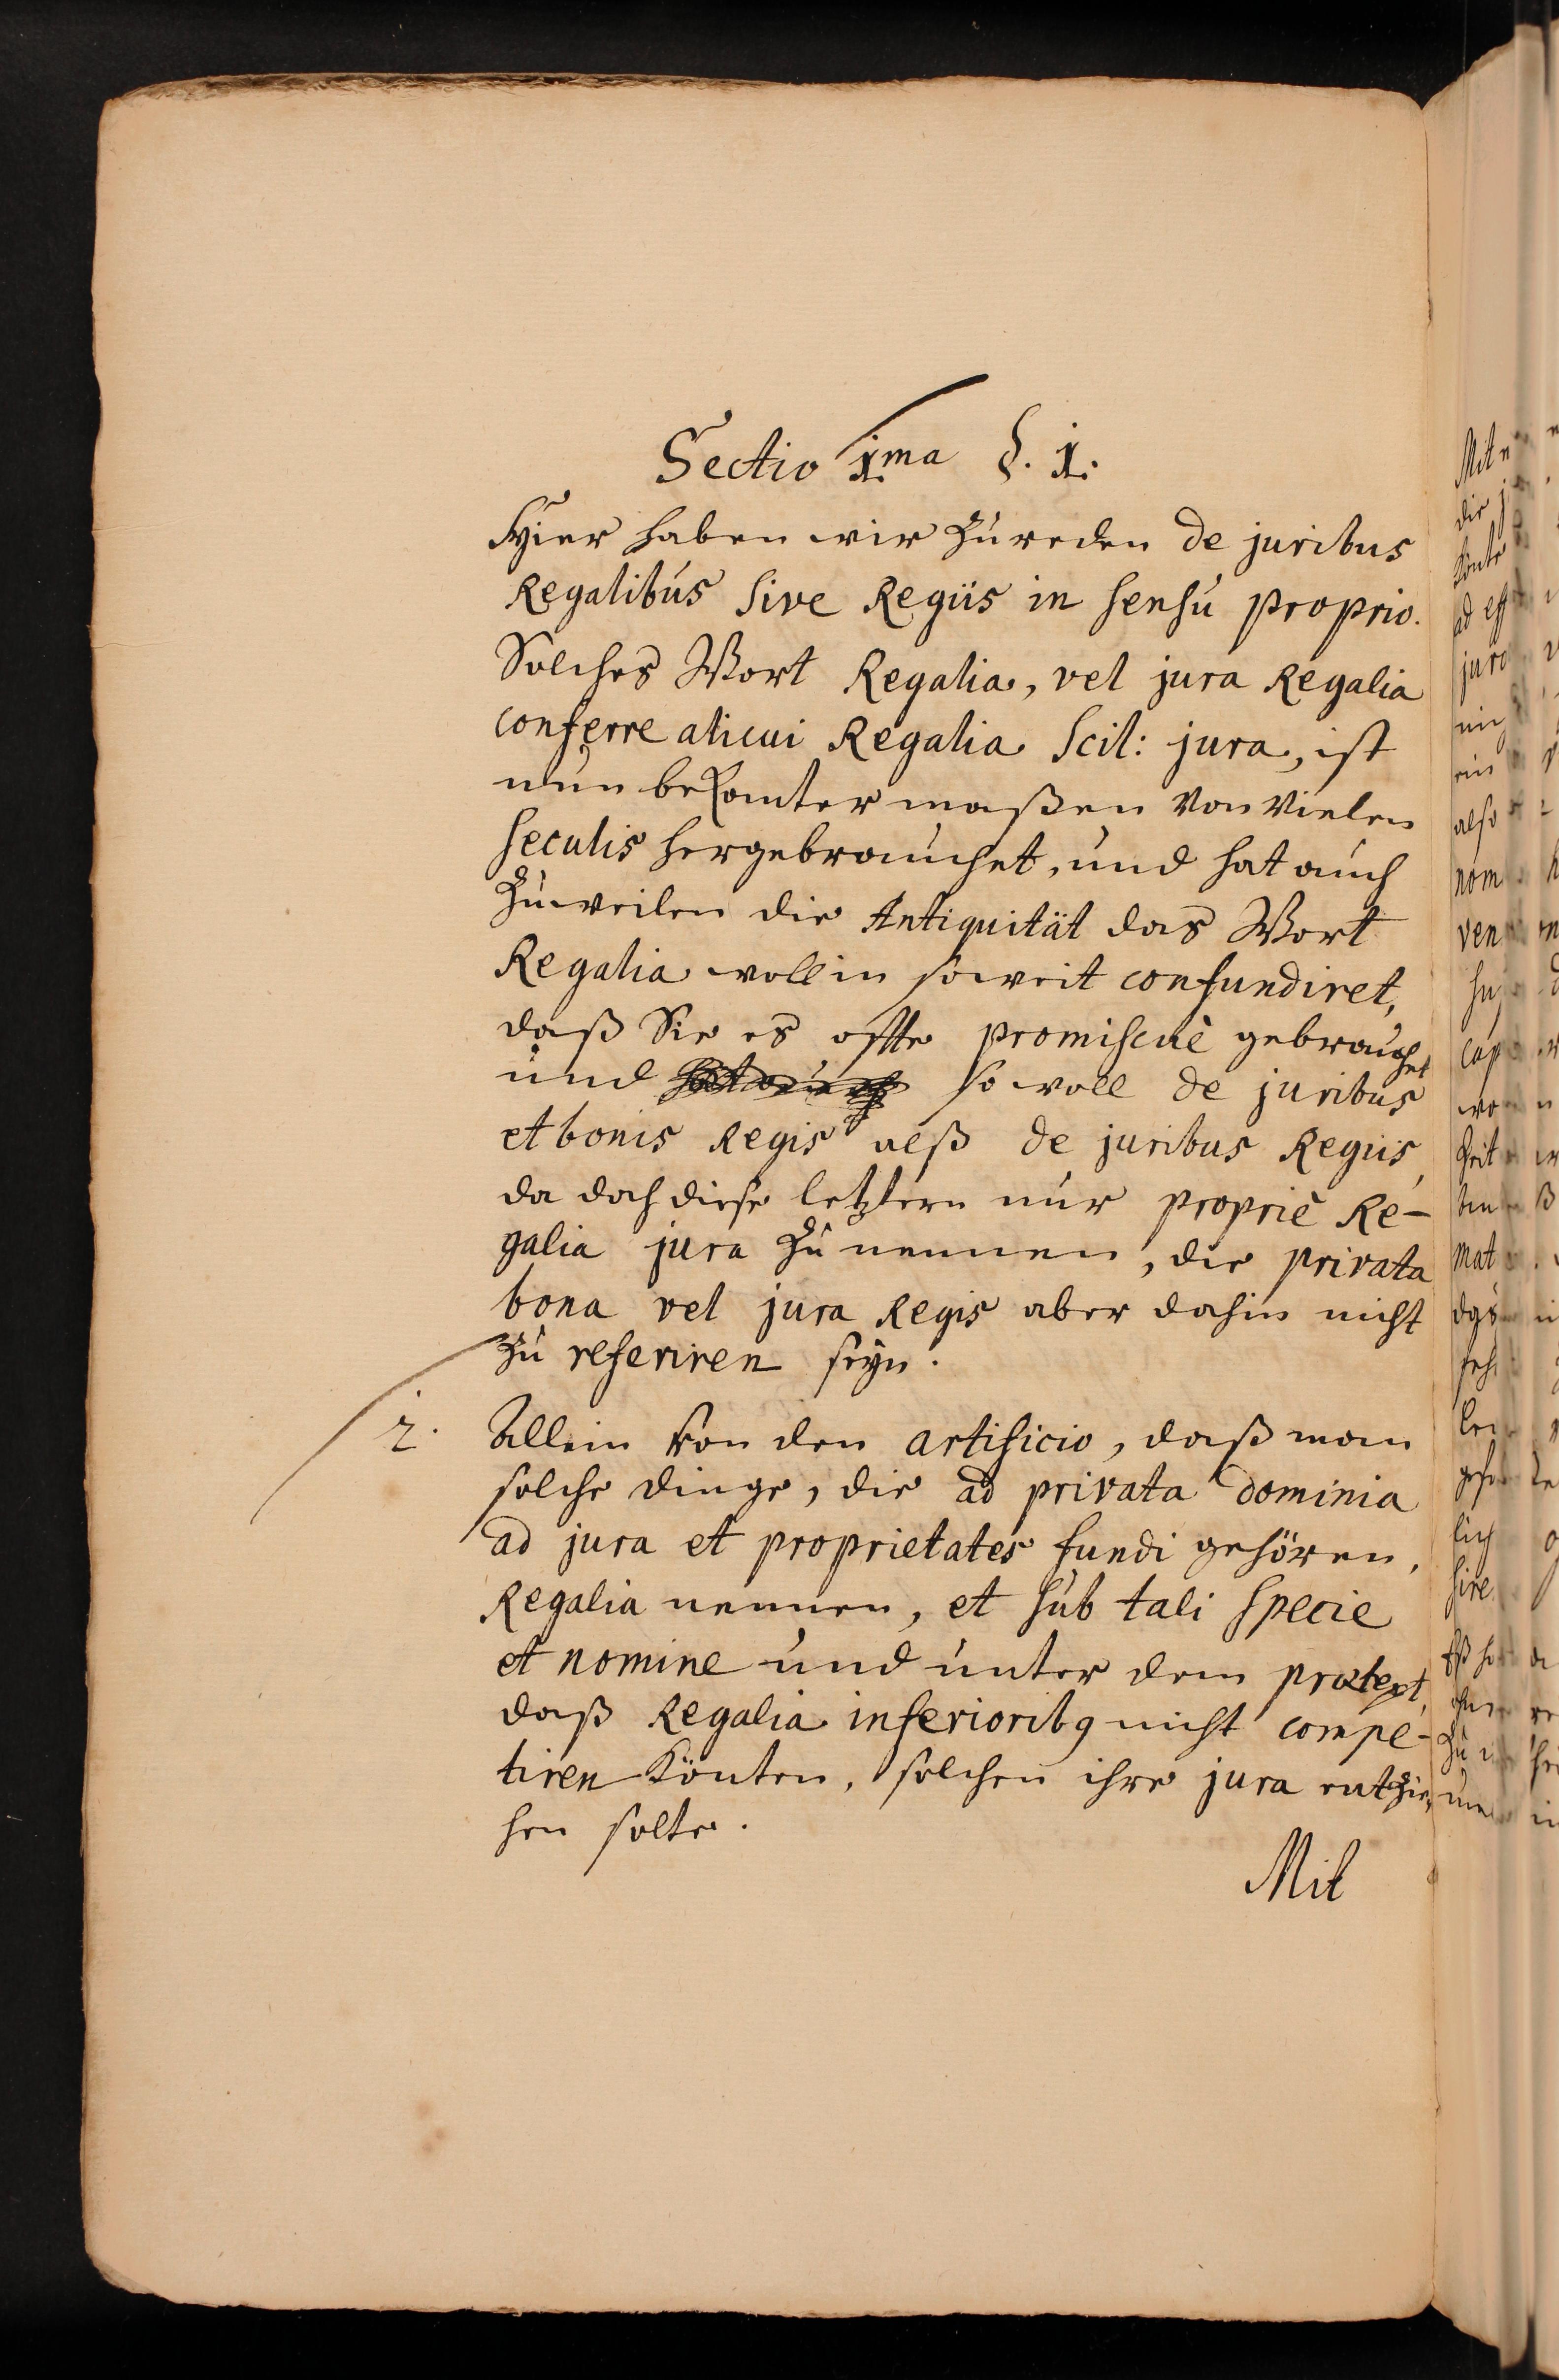 Sectio 1.ma §. 1.
Hier haben wir zu reden de juribus
Regalibus sive Regiis in sensu proprio.
Solches Wort Regalia, vel jura Regalia
conferre alicui Regalia scil: jura, ist
nun bekanter maßen von vielen
seculis hergebrauchet, und hat auch
zuweilen die Antiquität das Wort
Regalia woll in soweit confundiret,
daß Sie es offte promiscuè gebrauchet
und so woll de juribus
et bonis Regis alß de juribus Regiis,
da doch diese letztern nur propriè Re-
galia jura zu nennen, die privata
bona vel jura Regis aber dahin nicht
zu referiren seyn.
2. Allein von den artificio, daß man
solche dinge, die ad privata dominia
ad jura et proprietates fundi gehören,
Regalia nennen, et sub tali specie
et nomine und unter dem prætext,
daß Regalia inferiorib9 nicht compe-
tiren könten, solchen ihre jura entzie-
hen solte.
Mit